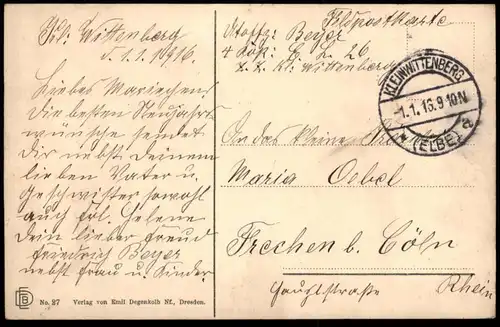 Kl. Wittenberg
d. 1. 1. 1916.
Liebes Mariechen!
Die besten Neujahrs
wünsche sendet
Dir nebst Deinem
lieben Vater u.
Geschwister sowohl
auch Frl. Helene
Dein lieber Freud
Friedrich Beyer
nebst Frau u. Kinder.
Feldpostkarte
Beyer
4 L. 26
z. Z. Kl. Wittenberg
KLEINWITTENBERG
1.1.16.9-10N
(ELBE) a
An das kleine
Maria Oebel
Frechen b. Cöln
Hauptstraße Rhein
No. 27 Verlag von Emil Degenkolb Nf., Dresden.